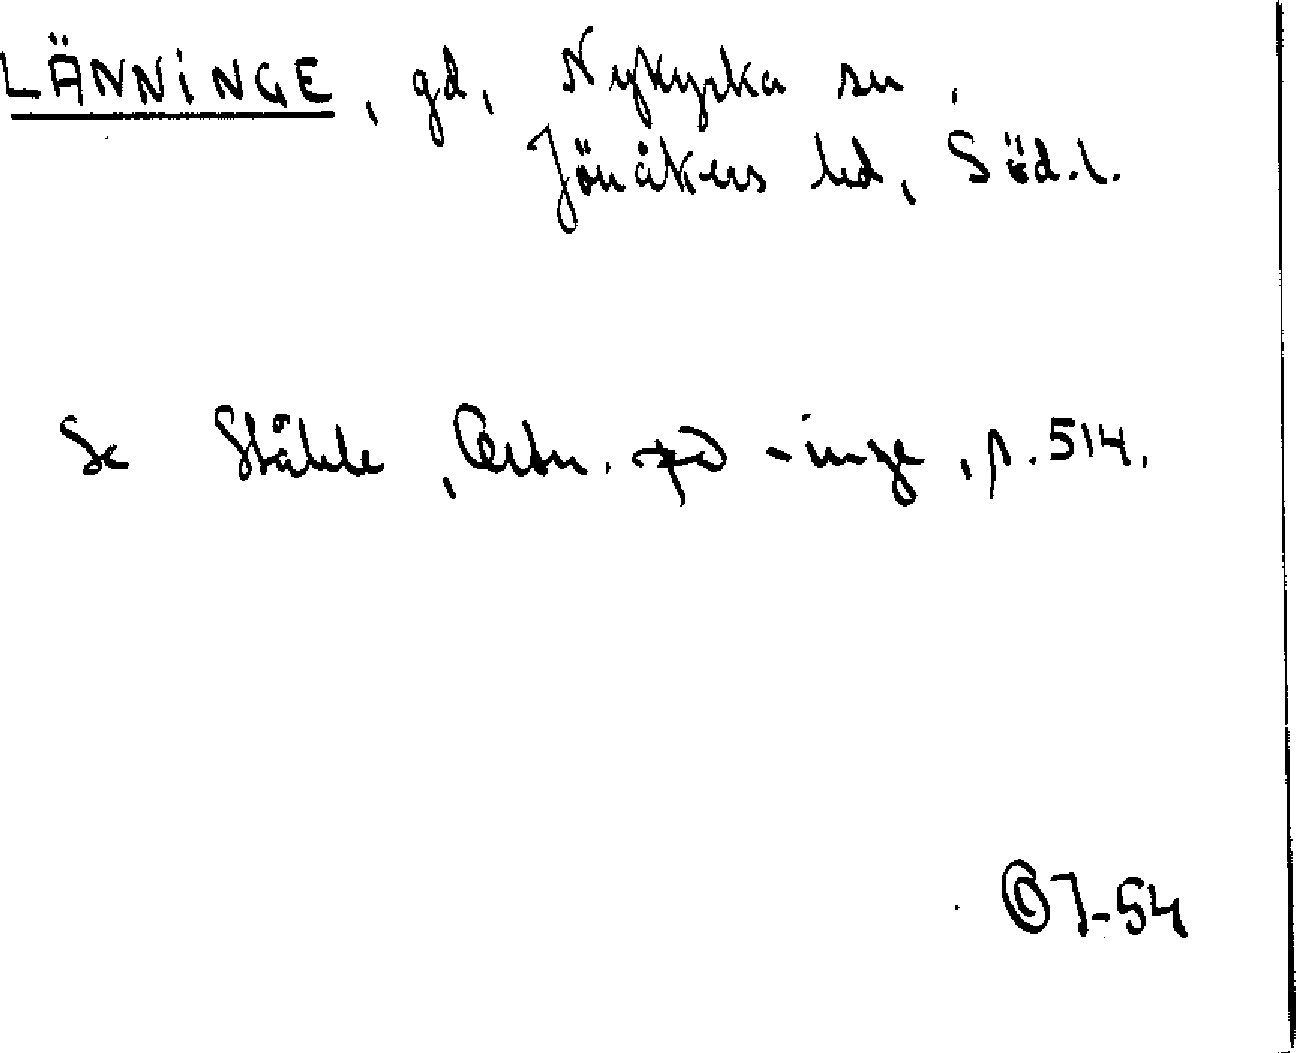 LÄNNINGE, gd, Nykyrka sn,
Jönåkers hd, Söd.l.
Se Ståhle, Ortn. på -inge, s. 514.
7-54